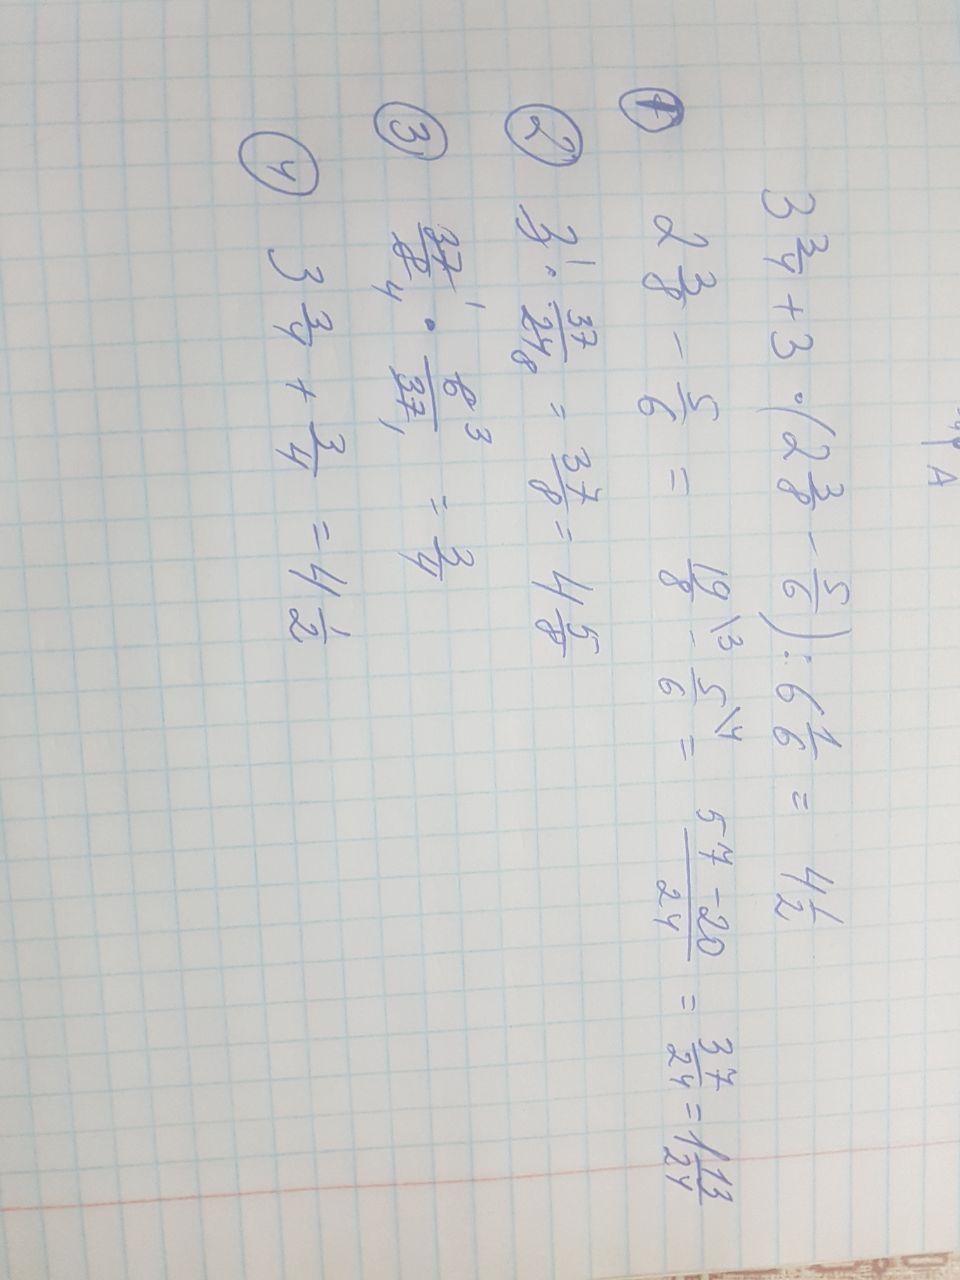 A
3 3/4 + 3 · (2 3/8 - 5/6) : 6 1/6 = 4 1/2
① 2 3/8 - 5/6 = 19/8 \3 - 5/6 \4 = 57-20/24 = 37/24 = 1 13/24
② 3 1 · 37/24 8 = 37/8 = 4 5/8
③ 37 1/8 4 · 6 3/37 1 = 3/4
④ 3 3/4 + 3/4 = 4 1/2